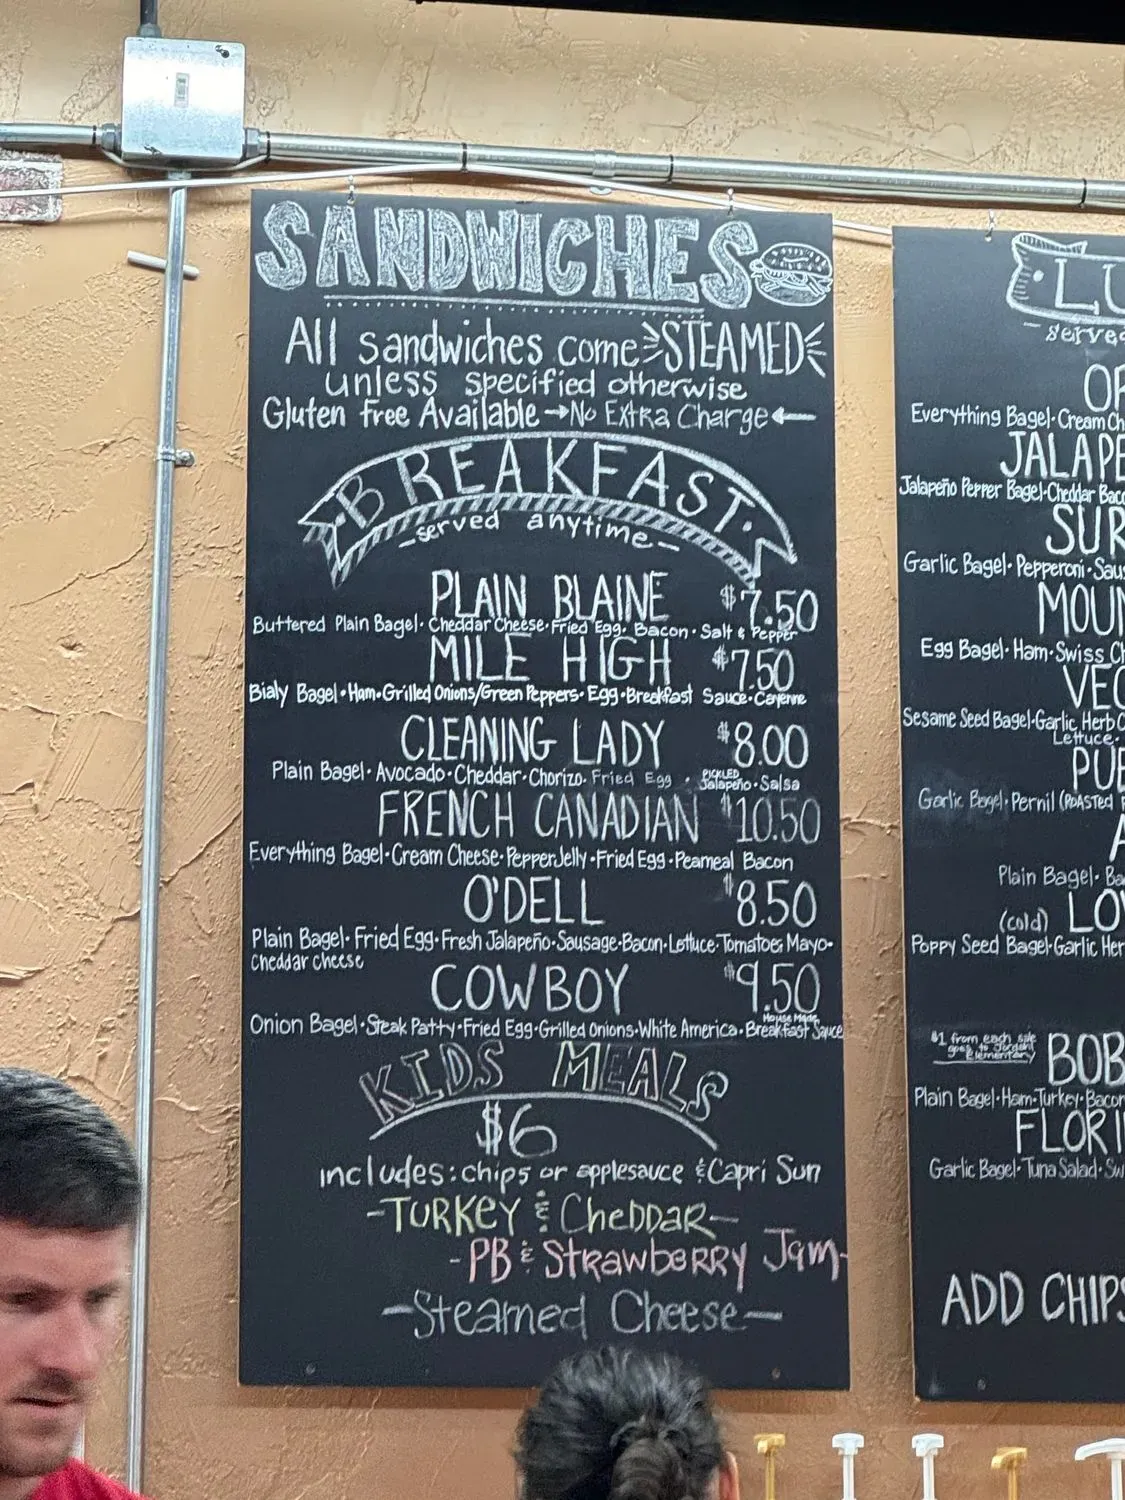 SANDWICHES
All sandwiches come STEAMED
unless specified otherwise
Gluten free Available → No Extra Charge ←
BREAKFAST
-served anytime-
PLAIN BLAINE $7.50
Buttered Plain Bagel · Cheddar Cheese · Fried Egg · Bacon · Salt & Pepper
MILE HIGH $7.50
Bialy Bagel · Ham · Grilled Onions/Green Peppers · Egg · Breakfast Sauce · Cayenne
CLEANING LADY $8.00
Plain Bagel · Avocado · Cheddar · Chorizo · Fried Egg · PICKLED Jalapeño · Salsa
FRENCH CANADIAN $10.50
Everything Bagel · Cream Cheese · Pepper Jelly · Fried Egg · Peameal Bacon
O'DELL $8.50
Plain Bagel · Fried Egg · Fresh Jalapeño · Sausage · Bacon · Lettuce · Tomatoes Mayo ·
Cheddar cheese
COWBOY $9.50
Onion Bagel · Steak Patty · Fried Egg · Grilled Onions · White America · House Made Breakfast Sauce
KIDS MEALS
$6
includes: chips or applesauce & Capri Sun
-TURKEY & Cheddar-
-PB & Strawberry Jam-
-Steamed Cheese-
LU
- serve
Everything Bagel · Cream Ch
JALAPE
Jalapeño Pepper Bagel · Cheddar Bac
SUR
Garlic Bagel · Pepperoni · Saus
MOUN
Egg Bagel · Ham · Swiss Ch
VEG
Sesame Seed Bagel · Garlic Herb C
Lettuce ·
PUE
Garlic Bagel · Pernil (ROASTED P
A
Plain Bagel · Ba
(cold) LO
Poppy Seed Bagel · Garlic Her
$1 from each sale
goes to
Elementary
BOB
Plain Bagel · Ham · Turkey · Bacon
FLORI
Garlic Bagel · Tuna Salad · Sw
ADD CHIPS